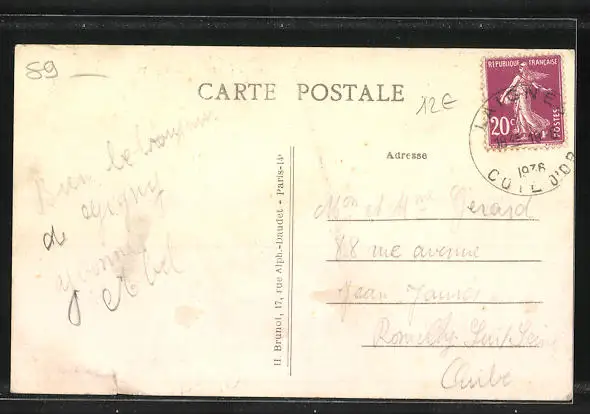 89
CARTE POSTALE
12€
REPUBLIQUE FRANÇAISE
20c
POSTES
1936
COTE D'OR
Adresse
Bien le bonjour
de
Abel
H Brunot, 17, rue Alph.-Daudet - Paris-14e
Mon et Mme Gerard
88 rue avenue
Jean Jaures
Romilly Sur Seine
Aube